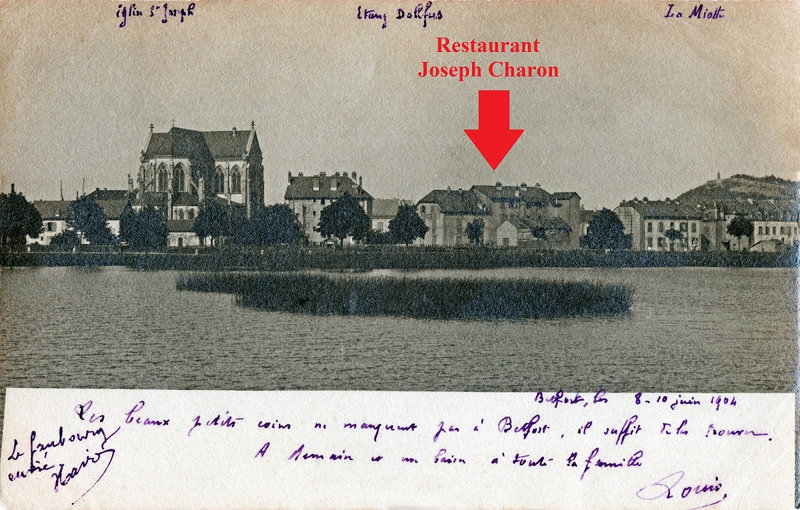 église St Joseph
Etang Dollfus
La Miotte
Restaurant
Joseph Charon
Belfort, les 8-10 juin 1904
Les beaux petits coins ne manquent pas à Belfort, il suffit de les trouver.
A demain et un baiser à toute la famille
Louis
Le faubourg